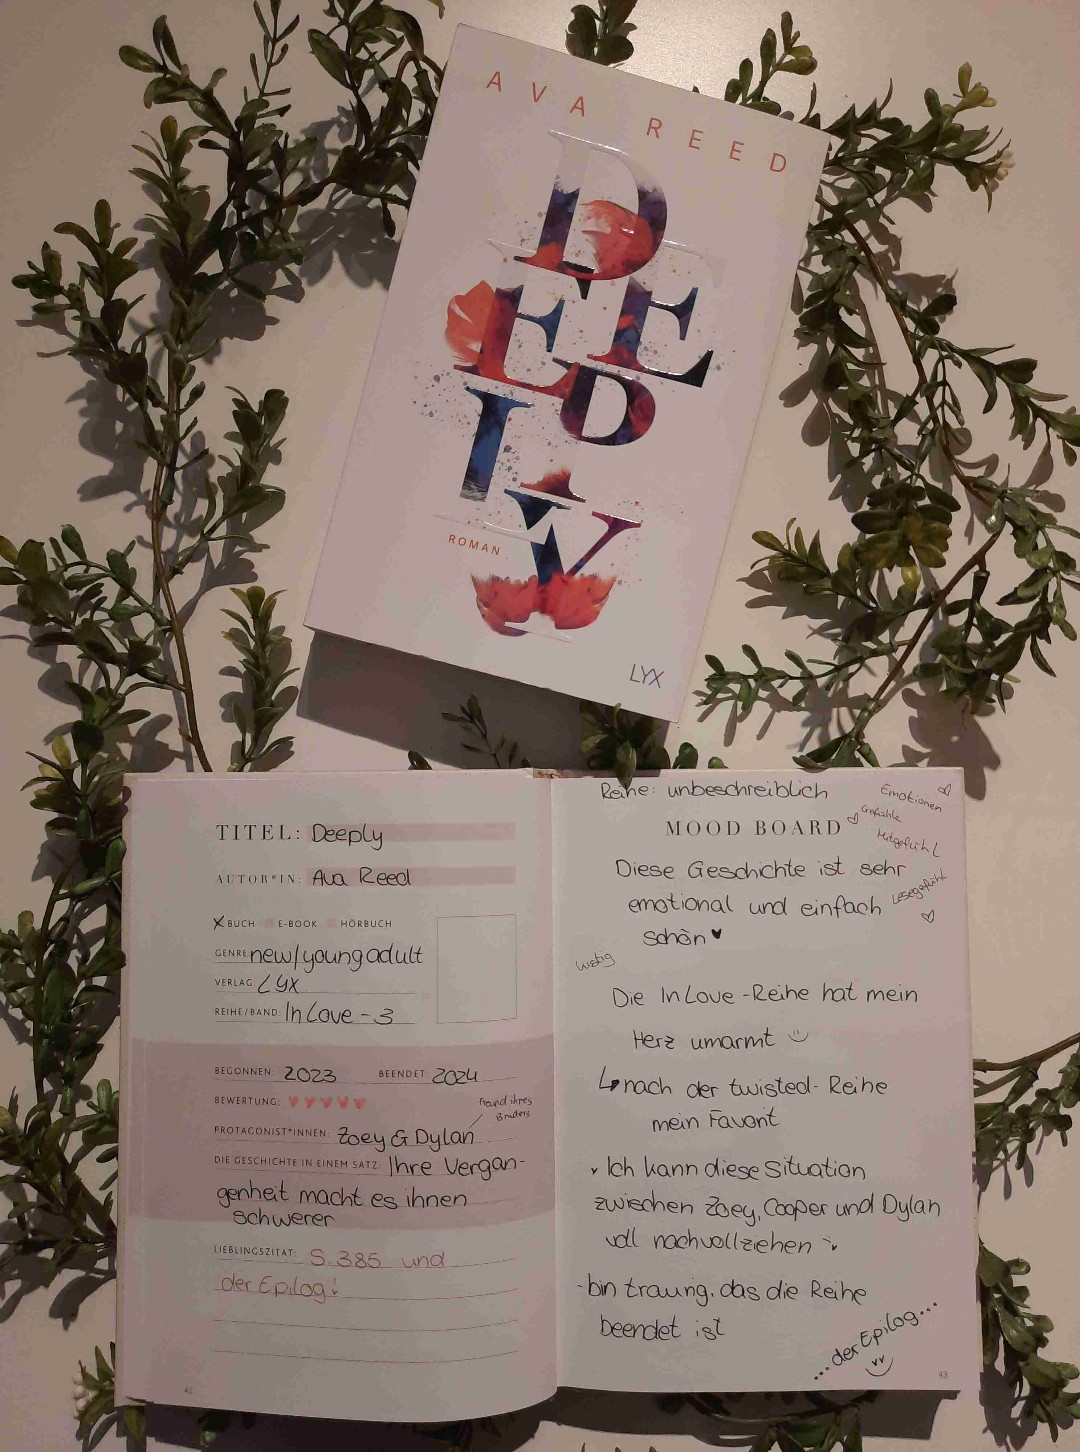 AVA REED
DEEPLY
ROMAN
LYX
TITEL: Deeply
AUTOR*IN: Ava Reed
X BUCH E-BOOK HÖRBUCH
GENRE: new/young adult
VERLAG: LYX
REIHE/BAND: In Love - 3
BEGONNEN: 2023 BEENDET: 2024
BEWERTUNG: ♥♥♥♥♥
Freund ihres
Bruders
PROTAGONIST*INNEN: Zoey & Dylan
DIE GESCHICHTE IN EINEM SATZ: Ihre Vergan-
genheit macht es ihnen
schwerer
LIEBLINGSZITAT: S. 385 und
der Epilog!
42
Reihe: unbeschreiblich
Emotionen
Gefühle
Mitgefühl
MOOD BOARD
Diese Geschichte ist sehr
emotional und einfach
schön ♥
Lesegefühl
lustig
Die In Love -Reihe hat mein
Herz umarmt
↳ nach der twisted- Reihe
mein Favorit
Ich kann diese Situation
zwischen Zoey, Cooper und Dylan
voll nachvollziehen
-bin traurig, das die Reihe
beendet ist
...der Epilog...
43